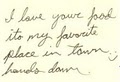 I love your food
its my favorite
place in town,
hands down